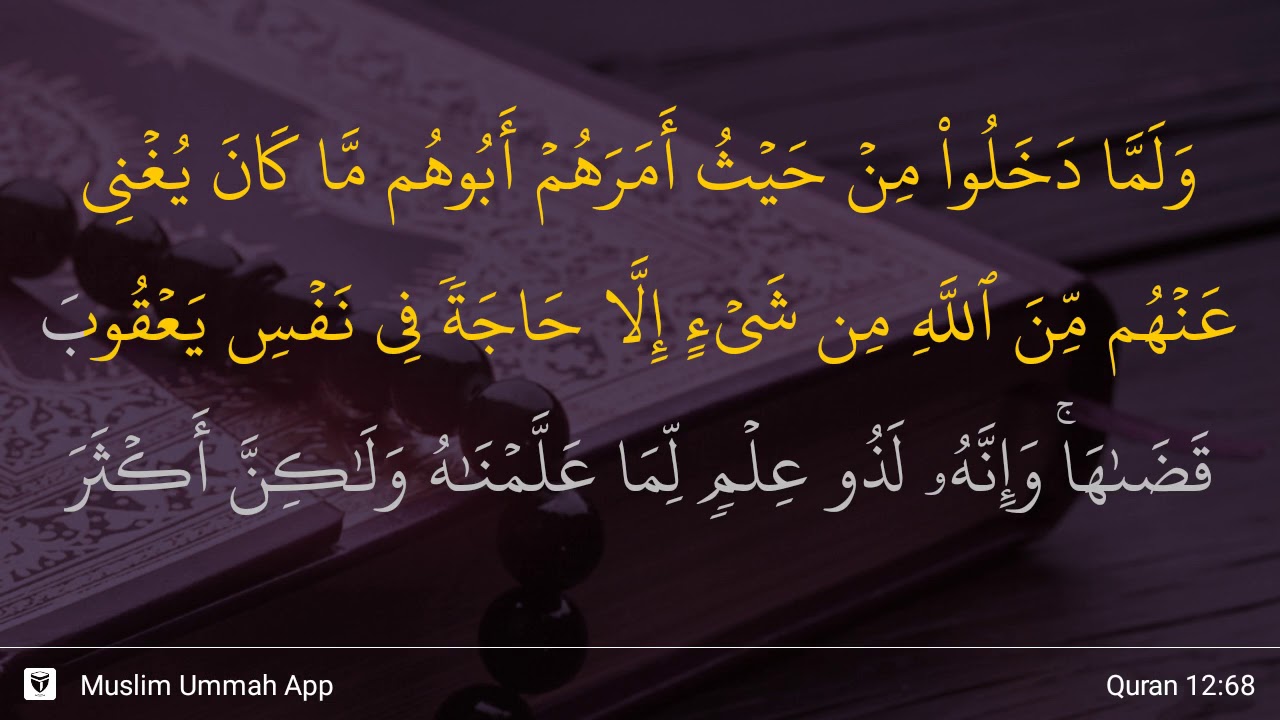 وَلَمَّا دَخَلُوا۟ مِنْ حَيْثُ أَمَرَهُمْ أَبُوهُم مَّا كَانَ يُغْنِى
عَنْهُم مِّنَ ٱللَّهِ مِن شَىْءٍ إِلَّا حَاجَةً فِى نَفْسِ يَعْقُوبَ
قَضَىٰهَا ۚ وَإِنَّهُۥ لَذُو عِلْمٍ لِّمَا عَلَّمْنَـٰهُ وَلَـٰكِنَّ أَكْثَرَ
Muslim Ummah App
Quran 12:68